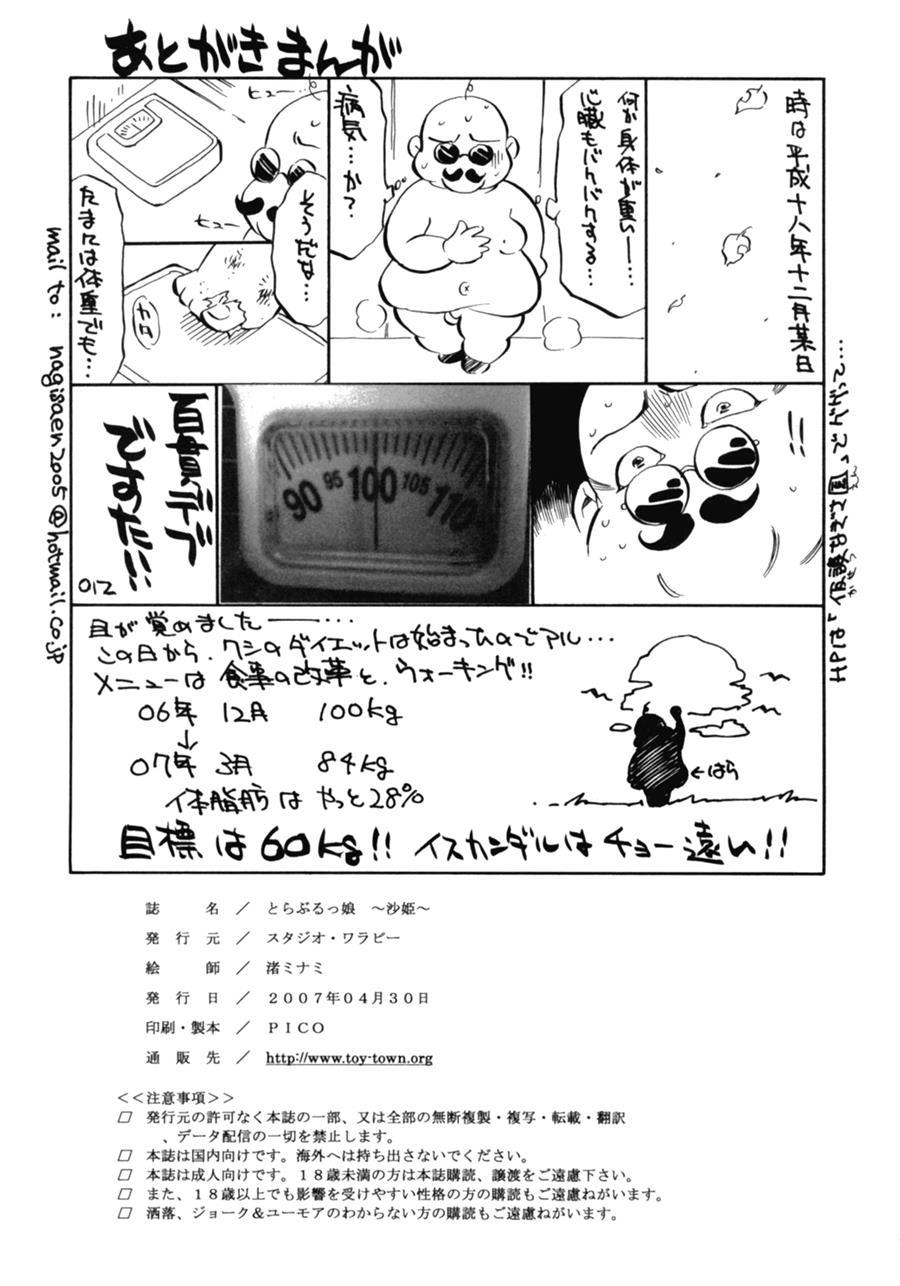 あとがきまんが
時は平成十八年十二月某日
何か身体が重いー…
心臓もバクバクする…
病気…か？
ヒュー…
ヒュー
そうだな…
たまには体重でも…
カタ
!!
90 95 100 105 110
百貫デブ
ですた!!!
目が覚めました―――…
この日から、ワシのダイエットは始まったのでアル…
メニューは食事の改革と、ウォーキング!!
06年 12月 100kg
↓
07年 3月 84kg
体脂肪は やっと28%
←はら
目標は60kg!! イスカンダルはチョー遠い!!
mail to: nagisaen2005@hotmail.co.jp
誌　名 ／ とらぶるっ娘　～沙姫～
発 行 元 ／ スタジオ・ワラビー
絵　師 ／ 渚ミナミ
発 行 日 ／ ２００７年０４月３０日
印刷・製本 ／ ＰＩＣＯ
通 販 先 ／ http://www.toy-town.org
＜＜注意事項＞＞
□ 発行元の許可なく本誌の一部、又は全部の無断複製・複写・転載・翻訳
、データ配信の一切を禁止します。
□ 本誌は国内向けです。海外へは持ち出さないでください。
□ 本誌は成人向けです。１８歳未満の方は本誌購読、譲渡をご遠慮下さい。
□ また、１８歳以上でも影響を受けやすい性格の方の購読もご遠慮ねがいます。
□ 洒落、ジョーク＆ユーモアのわからない方の購読もご遠慮ねがいます。